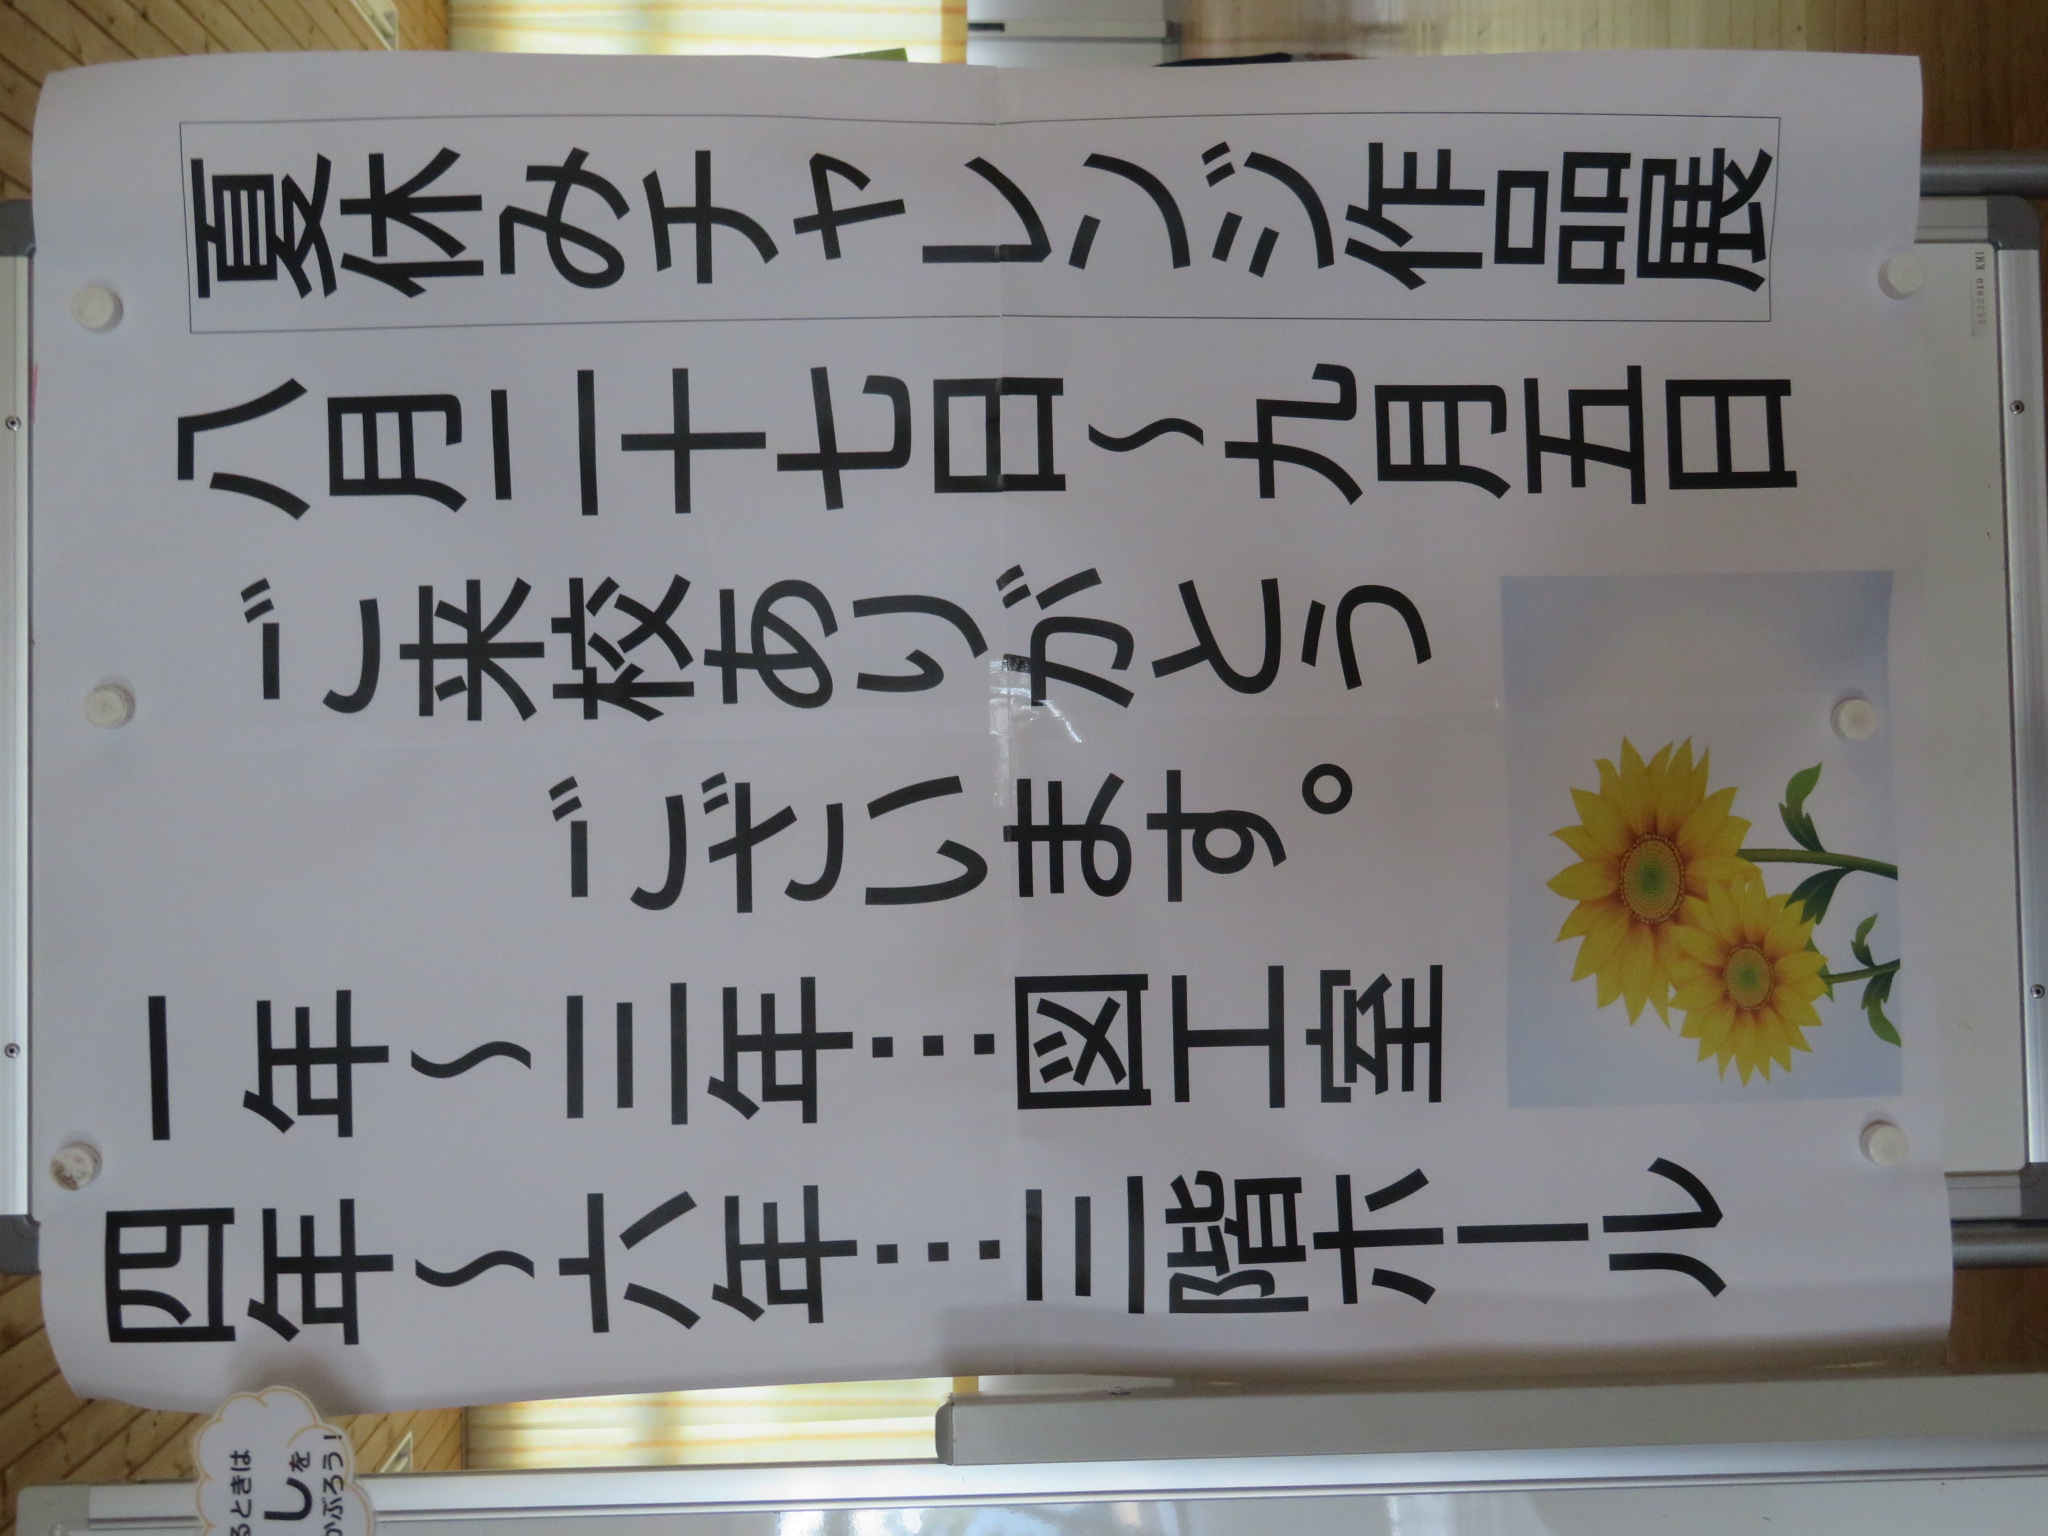 夏休みチャレンジ作品展
八月二十七日～九月五日
ご来校ありがとう
ございます。
一年～三年…図工室
四年～六年…三階ホール
るときは
しを
かぶろう!